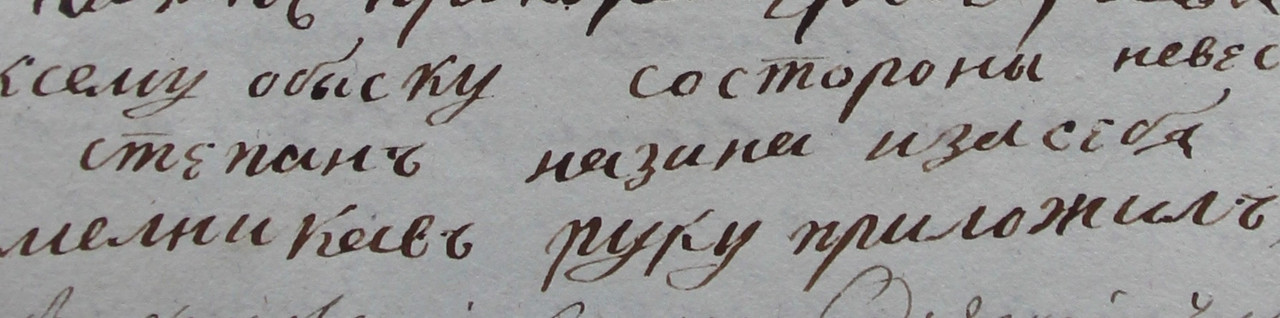 ксему обыску состороны невес
степанъ назина изасебя
мелникавъ руку приложилъ